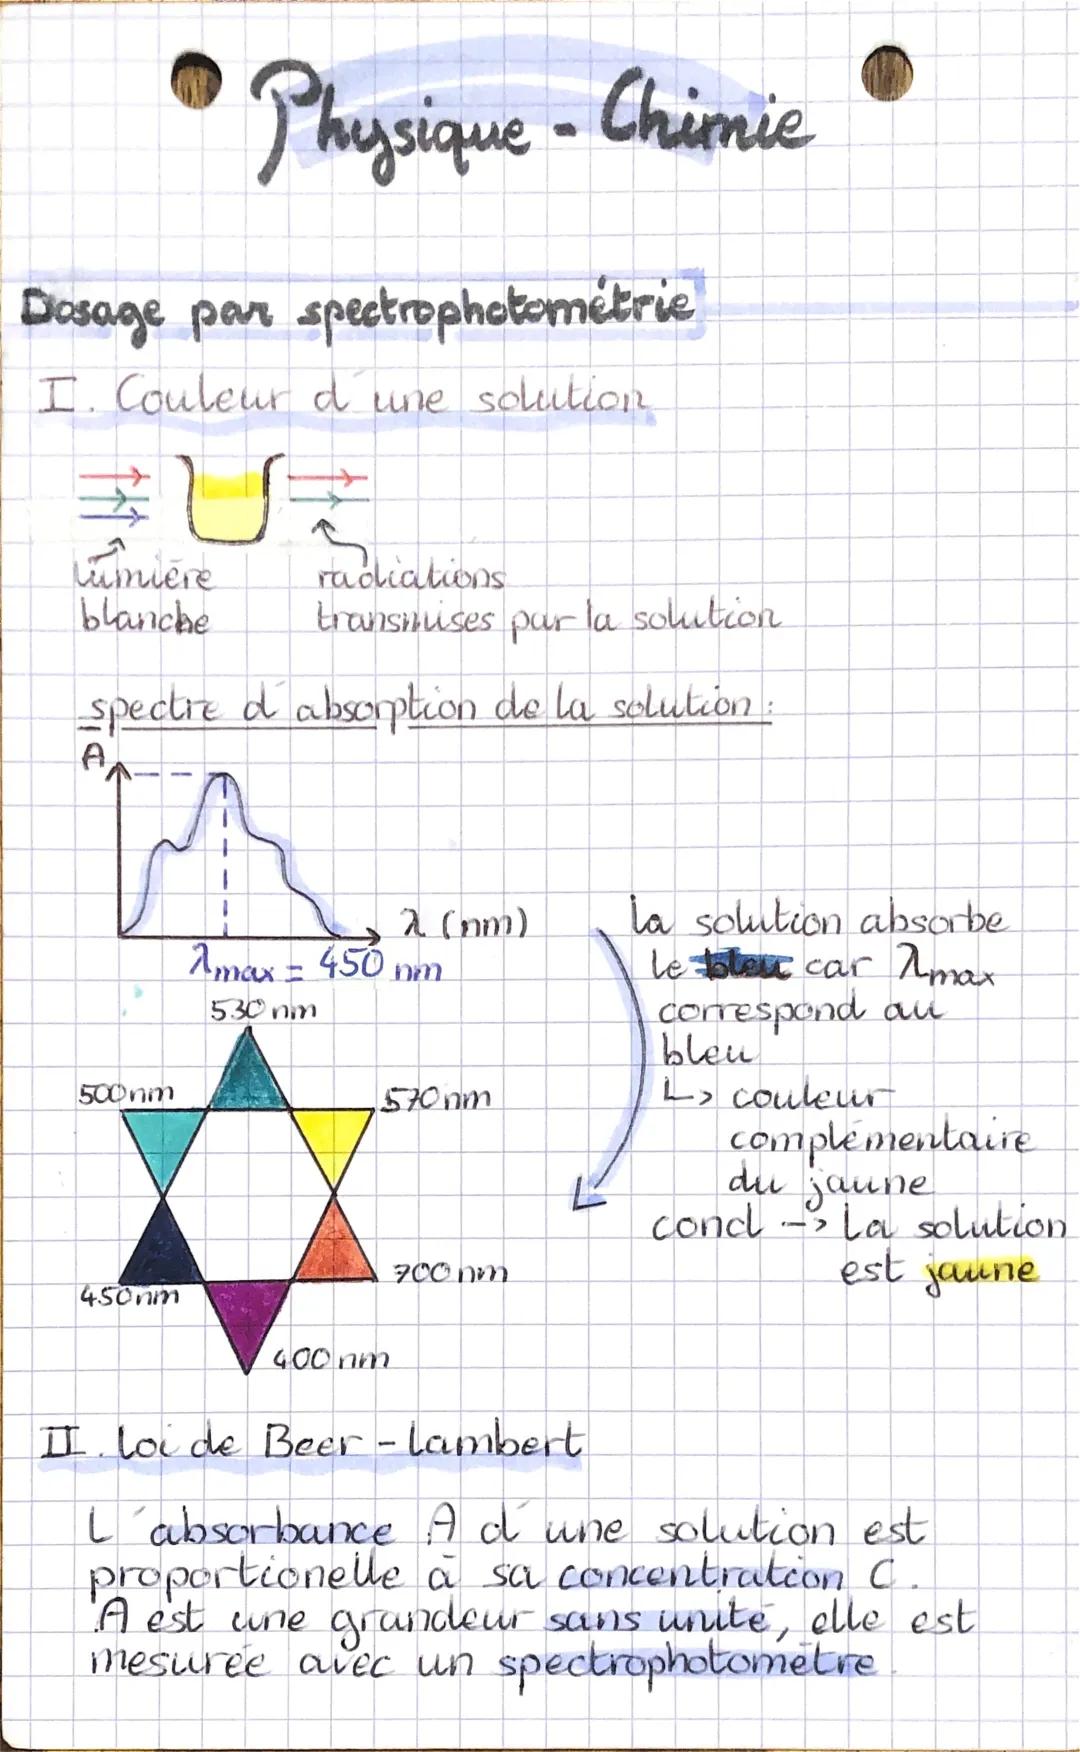 Physique - Chimie
Dosage par spectrophotométrie
I. Couleur d'une solution
lumière
blanche
radiations
transmises par la solution
spectre d'absorption de la solution :
A
λ (nm)
λmax = 450 nm
la solution absorbe
le bleu car λmax
correspond au
bleu
↳ couleur
complémentaire
du jaune
concl -> La solution
est jaune
530 nm
500nm
570 nm
450nm
700 nm
400 nm
II. Loi de Beer - Lambert
L'absorbance A d'une solution est
proportionelle à sa concentration C.
A est une grandeur sans unité, elle est
mesurée avec un spectrophotomètre.